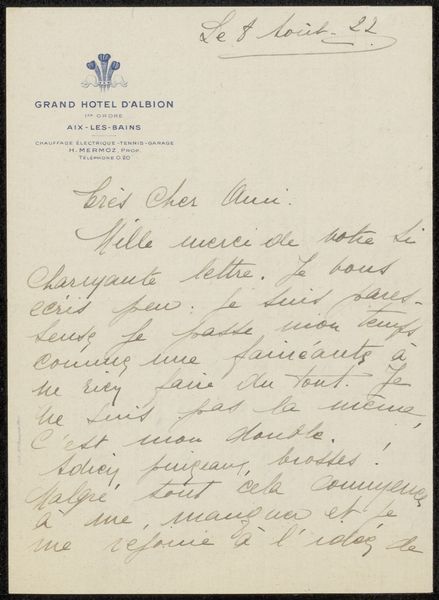 Le 8 Août - 22
GRAND HOTEL D'ALBION
1ER ORDRE
AIX-LES-BAINS
CHAUFFAGE ÉLECTRIQUE-TENNIS-GARAGE
H. MERMOZ, PROP.
TÉLÉPHONE 0.20
Très Cher Ami.
Mille merci de votre si
charmante lettre. Je vous
écris peu. Je suis pares-
seuse je passe mon temps
comme une fainéante à
ne rien faire du tout. Je
ne suis pas la même,
C'est mon double.
Adieu pinceaux, brosses!
Malgré tout cela commence
à me manquer et je
me réjouie à l'idée de